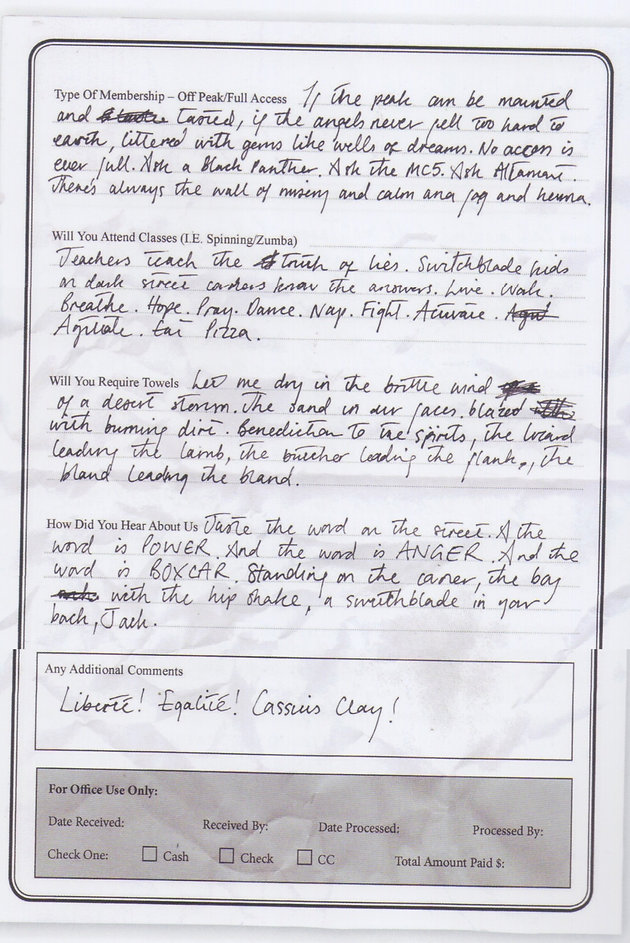 Type Of Membership – Off Peak/Full Access If the peak can be mounted
and tamed, if the angels never fell too hard to
earth, littered with gems like wells of dreams. No access is
ever full. Ask a Black Panther. Ask the MC5. Ask Altamont.
There's always the wall of misery and calm and fog and henna.
Will You Attend Classes (I.E. Spinning/Zumba)
Teachers teach the truth of lies. Switchblade kids
on dark street corners know the answers. Live. Walk.
Breathe. Hope. Pray. Dance. Nap. Fight. Activate.
Agitate. Eat Pizza.
Will You Require Towels Let me dry in the brittle wind
of a desert storm. The sand in our faces, blazed
with burning dirt. Benediction to the spirits, the lizard
leading the lamb, the butcher leading the flank, the
bland leading the bland.
How Did You Hear About Us Taste the word on the street. & the
word is POWER. And the word is ANGER. And the
word is BOXCAR. Standing on the corner, the boy
with the hip shake, a switchblade in your
back, Jack.
Any Additional Comments
Liberté! Egalité! Cassius Clay!
For Office Use Only:
Date Received: Received By: Date Processed: Processed By:
Check One: Cash Check CC Total Amount Paid $: